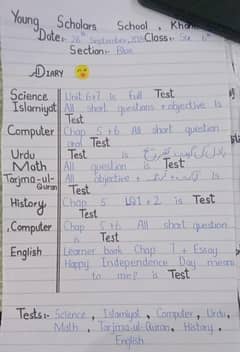 Young Scholars School, Kha
Date:- 26th September, Class:- 6th
Section:- Blue
Diary
Science Unit 6+7 is Full Test
Islamiyat All short questions + objective is Test
Computer Chap 5 + 6 All short question and Test
Urdu is Test
Math All question is Test
Tarjma-ul-Quran All objective + is Test
History Chap 5 LQ1 + 2 is Test
Computer Chap 5+6 All short question is Test
English Learner book Chap 7 + Essay
Happy Independence Day means
to me? is Test
Tests:- Science, Islamiyat, Computer, Urdu,
Math, Tarjma-ul-Quran, History,
English